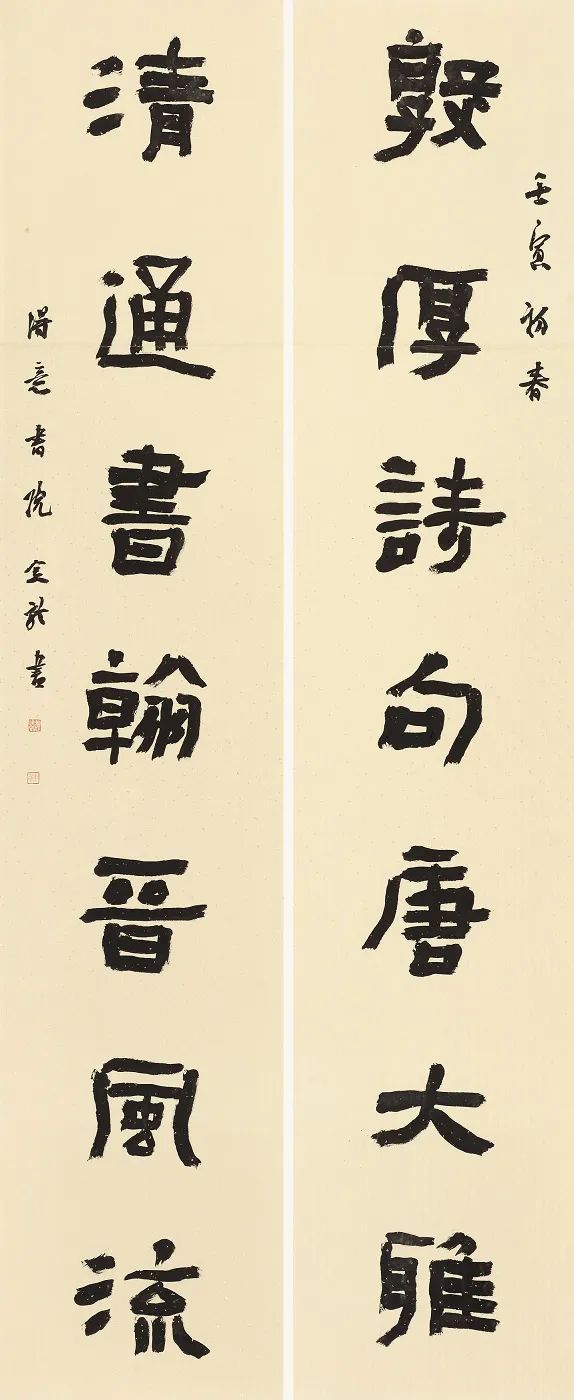 壬寅初春
敦厚詩句唐大雅
清通書翰晉風流
得意書院 書